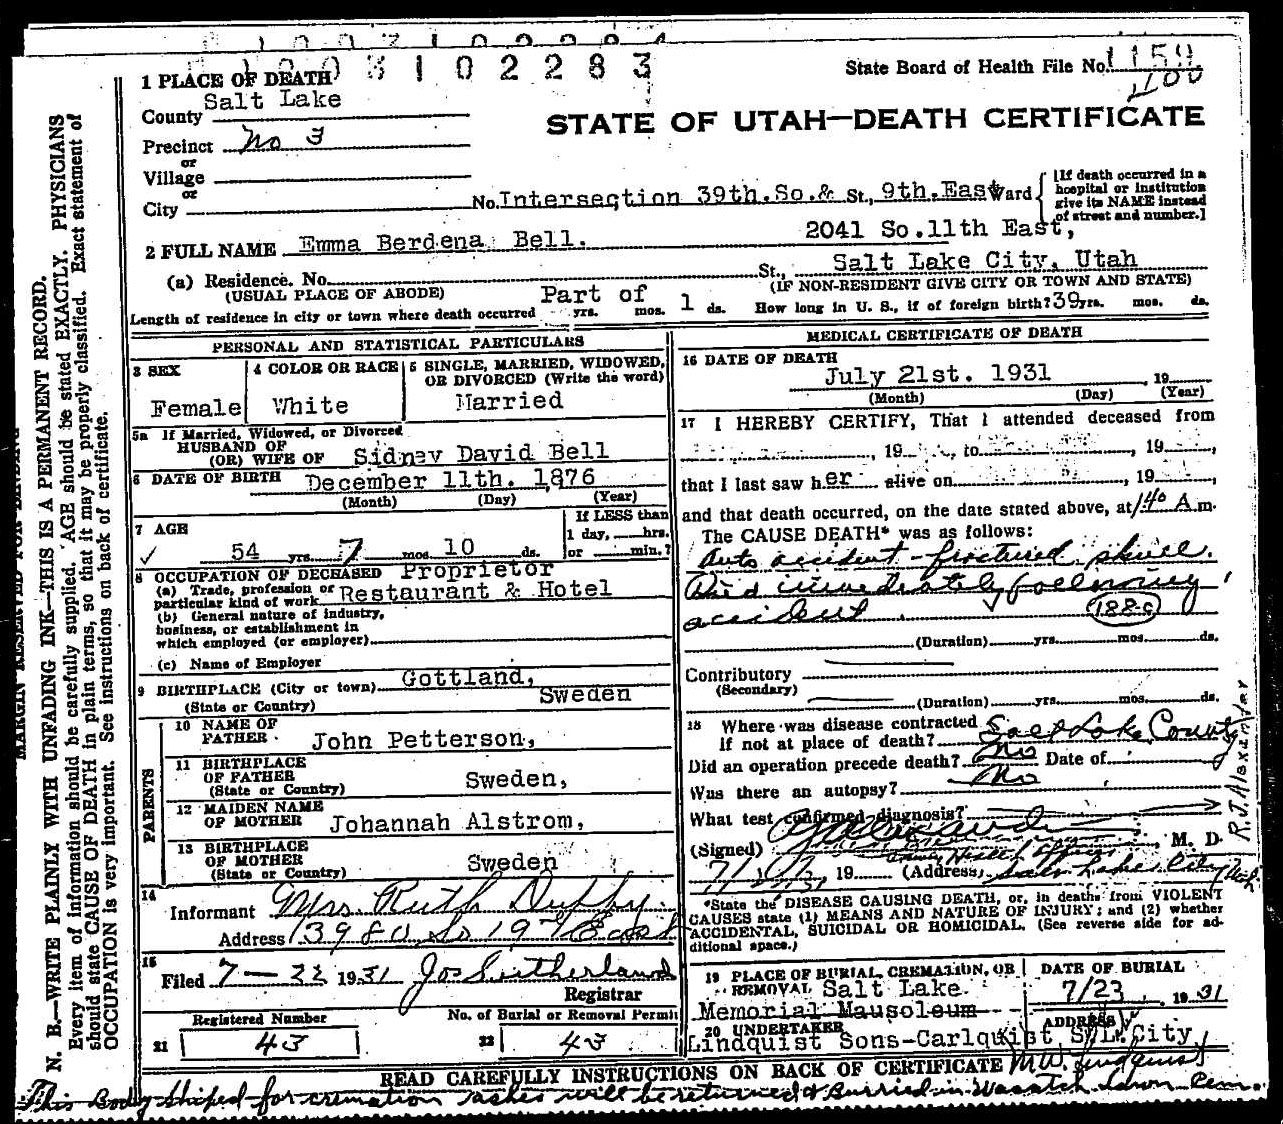 1003102283
1 PLACE OF DEATH
State Board of Health File No. 1159
1100
County Salt Lake
STATE OF UTAH—DEATH CERTIFICATE
Precinct No 3
or
Village
or
City
No. Intersection 39th.So.& St., 9th.East Ward
[If death occurred in a
hospital or institution
give its NAME instead
of street and number.]
2 FULL NAME Emma Berdena Bell.
2041 So.11th East,
(a) Residence. No. St., Salt Lake City, Utah
(USUAL PLACE OF ABODE) (IF NON-RESIDENT GIVE CITY OR TOWN AND STATE)
Length of residence in city or town where death occurred Part of yrs. mos. 1 ds. How long in U. S., if of foreign birth? 39 yrs. mos. ds.
PERSONAL AND STATISTICAL PARTICULARS
3 SEX
Female
4 COLOR OR RACE
White
5 SINGLE, MARRIED, WIDOWED,
OR DIVORCED (Write the word)
Married
5a If Married, Widowed, or Divorced
HUSBAND OF
(OR) WIFE OF Sidney David Bell
6 DATE OF BIRTH December 11th. 1876
(Month) (Day) (Year)
7 AGE
54 yrs. 7 mos. 10 ds.
If LESS than
1 day, hrs.
or min.?
8 OCCUPATION OF DECEASED Proprietor
(a) Trade, profession or
particular kind of work Restaurant & Hotel
(b) General nature of industry,
business, or establishment in
which employed (or employer)
(c) Name of Employer
9 BIRTHPLACE (City or town) Gottland,
(State or Country) Sweden
PARENTS
10 NAME OF
FATHER John Petterson,
11 BIRTHPLACE
OF FATHER
(State or Country) Sweden,
12 MAIDEN NAME
OF MOTHER Johannah Alstrom,
13 BIRTHPLACE
OF MOTHER
(State or Country) Sweden
14
Informant Mrs. Ruth Duffy.
Address 3980 So 19th East
15
Filed 7-22 1931 Jos Sutherland
Registrar
Registered Number
21 43
No. of Burial or Removal Permit
22 43
MEDICAL CERTIFICATE OF DEATH
16 DATE OF DEATH
July 21st. 1931, 19
(Month) (Day) (Year)
17 I HEREBY CERTIFY, That I attended deceased from
, 19 , to , 19
that I last saw her alive on , 19
and that death occurred, on the date stated above, at 1:40 A.m.
The CAUSE DEATH* was as follows:
Auto accident fractured skull.
Died immediately following
accident 188-c
(Duration) yrs. mos. ds.
Contributory
(Secondary)
(Duration) yrs. mos. ds.
18 Where was disease contracted
if not at place of death? Salt Lake County
Did an operation precede death? No Date of
Was there an autopsy? No
What test confirmed diagnosis?
(Signed) , M. D.
R.J. Alexander
19 (Address) Salt Lake City Utah
*State the DISEASE CAUSING DEATH, or, in deaths from VIOLENT
CAUSES state (1) MEANS AND NATURE OF INJURY; and (2) whether
ACCIDENTAL, SUICIDAL OR HOMICIDAL. (See reverse side for ad-
ditional space.)
19 PLACE OF BURIAL, CREMATION, OR
REMOVAL Salt Lake
Memorial Mausoleum
DATE OF BURIAL
7/23, 1931
20 UNDERTAKER
Lindquist Sons-Carlquist
ADDRESS
S.L.City
M.W. Lindquist
READ CAREFULLY INSTRUCTIONS ON BACK OF CERTIFICATE
This Body shiped for cremation ashes will be returned & Burried in Wasatch Lawn Cem.
MARGIN RESERVED FOR BINDING
N. B.—WRITE PLAINLY WITH UNFADING INK—THIS IS A PERMANENT RECORD.
Every item of information should be carefully supplied. AGE should be stated EXACTLY. PHYSICIANS
should state CAUSE OF DEATH in plain terms, so that it may be properly classified. Exact statement of
OCCUPATION is very important. See instructions on back of certificate.